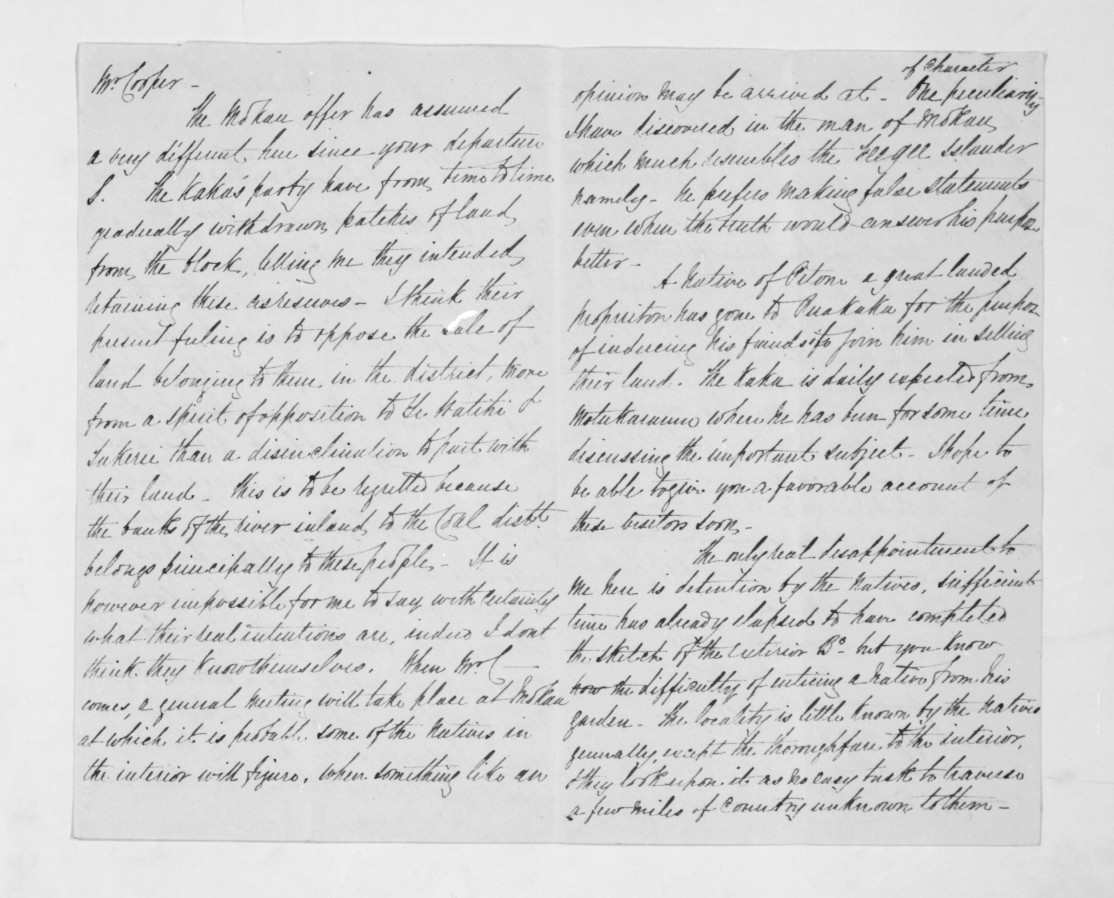 Mr. Cooper -
The Mokau offer has assumed
a very different hue since your departure
S. Te Kaka's party have from time to time
gradually withdrawn patches of land
from the block, telling me they intended
retaining these as reserves - I think their
present feeling is to oppose the sale of
land belonging to them in the district, more
from a spirit of opposition to Te Watihi &
Takerei than a disinclination to part with
their land - This is to be regretted because
the banks of the river inland to the Coal distt.
belongs principally to these people - It is
however impossible for me to say with certainty
what their real intentions are, indeed I dont
think they know themselves. When Mr. C -
comes, a general meeting will take place at Mokau
at which it is probable some of the Natives in
the interior will figure, when something like an
opinion may be arrived at - One peculiarity of Character
I have discovered in the man of Mokau,
which much resembles the Feegee Islander
namely - he prefers making false statements
even when the truth would answer his purpose
better -
A Native of Petone a great landed
proprietor has gone to Puakaka for the purpose
of inducing his friends to join him in selling
their land. Te Kaka is daily expected from
Motukaramu where he has been for some time
discussing the important subject - I hope to
be able to give you a favorable account of
these visitors soon -
The only real disappointment to
me here is detention by the Natives, sufficient
time has already elapsed to have completed
the sketch of the exterior By. but you know
how the difficulty of enticing a Native from his
garden - The locality is little known by the Natives
generally, except the thoroughfare to the interior,
& they look upon it as no easy task to traverse
a few miles of country unknown to them -